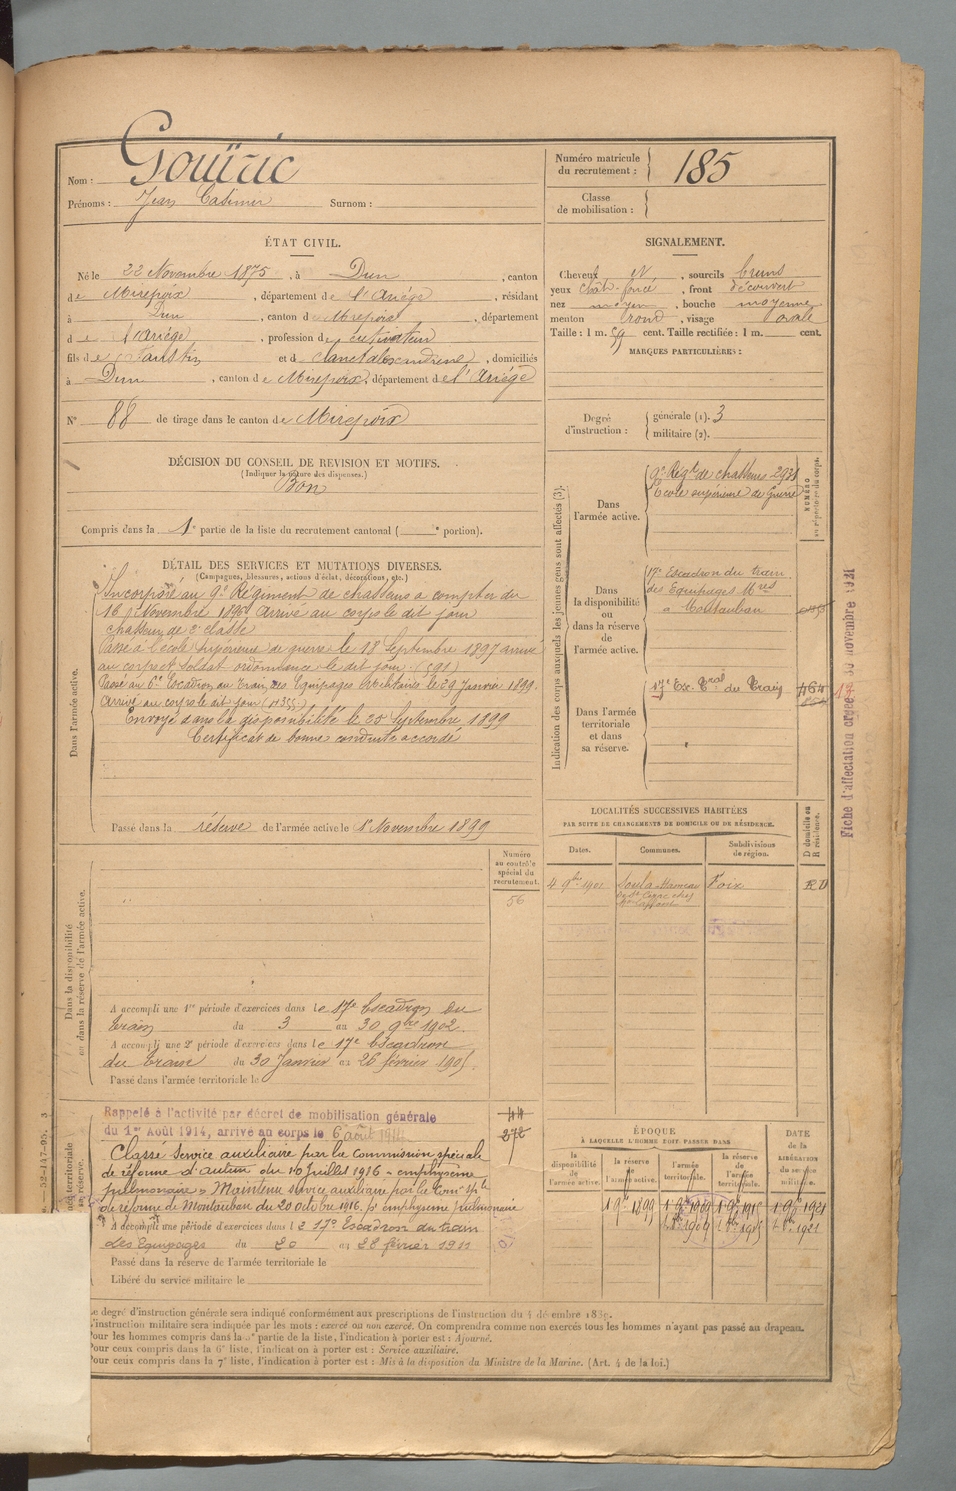 Nom : Gouïric
Prénoms : Jean Casimir Surnom :
Numéro matricule du recrutement : 185
Classe de mobilisation :
ÉTAT CIVIL.
Né le 22 Novembre 1875, à Dun, canton
de Mirepoix, département de l'Ariége, résidant
à Dun, canton de Mirepoix, département
d e l'Ariége, profession de cultivateur
fils de Faustin et d, domiciliés
à Dun, canton de Mirepoix, département de l'Ariége
N° 88 de tirage dans le canton de Mirepoix
SIGNALEMENT.
Cheveux et, sourcils bruns
yeux chât-foncé, front découvert
nez moyen, bouche moyenne
menton rond, visage ovale
Taille : 1 m. 59 cent. Taille rectifiée : 1 m. cent.
MARQUES PARTICULIÈRES :
Degré d'instruction : générale (1). 3
militaire (2).
DÉCISION DU CONSEIL DE REVISION ET MOTIFS.
(Indiquer la nature des dispenses.)
Bon
Compris dans la 1e partie de la liste du recrutement cantonal ( e portion).
DÉTAIL DES SERVICES ET MUTATIONS DIVERSES.
(Campagnes, blessures, actions d'éclat, décorations, etc.)
Dans l'armée active.
Incorporé au 9e Régiment de chasseurs a compter du
16 Novembre 1896 Arrivé au corps le dit jour
chasseur de 2e classe
Passé à l'école supérieure de guerre le 18 Septembre 1897 arrivé
au corps et soldat ordonnance le dit jour (591)
Passé au 6e Escadron du Train des Equipages Militaires le 29 Janvier 1899.
Arrivé au corps le dit jour (H355)
Envoyé dans la disponibilité le 20 Septembre 1899
Certificat de bonne conduite accordé
Passé dans la réserve de l'armée active le 1er Novembre 1899
Indication des corps auxquels les jeunes gens sont affectés (3).
NUMÉRO au répertoire du corps.
Dans l'armée active.
9e Régt de chasseurs 2931
Ecole supérieure de Guerre
Dans la disponibilité ou dans la réserve de l'armée active.
17e Escadron du train
des Equipages Mres
a Montauban
Dans l'armée territoriale et dans sa réserve.
17e Ex. Tral du Train 464
Fiche d'affectation créée 30 novembre 1921
LOCALITÉS SUCCESSIVES HABITÉES
PAR SUITE DE CHANGEMENTS DE DOMICILE OU DE RÉSIDENCE.
Dates. Communes. Subdivisions de région. D domicile ou R résidence.
4 9bre 1901 Soula Hameau Foix RD
Dans la disponibilité ou dans la réserve de l'armée active.
Numéro au contrôle spécial du recrutement.
56
A accompli une 1re période d'exercices dans le 17e Escadron du
train du 3 au 30 9bre 1902.
A accompli une 2e période d'exercices dans le 17e Escadron
du train du 30 Janvier au 26 février 1905.
Passé dans l'armée territoriale le
Rappelé à l'activité par décret de mobilisation générale
du 1er Août 1914, arrivé au corps le 6 août 1914
44
272
Classé Service auxiliaire par la Commission spéciale
de réforme d'autun du 10 Juillet 1916 - emphysème
pulmonaire - Maintenu service auxiliaire par la Comon sple
de réforme de Montauban du 20 octobre 1916, pr emphysème pulmonaire
A accompli une période d'exercices dans le 17e Escadron du train
des Equipages du 20 au 28 février 1911
Passé dans la réserve de l'armée territoriale le
Libéré du service militaire le
ÉPOQUE
À LAQUELLE L'HOMME DOIT PASSER DANS
DATE de la LIBÉRATION du service militaire.
la disponibilité de l'armée active. la réserve de l'armée active. l'armée territoriale. la réserve de l'armée territoriale.
1 9bre 1899 1 9bre 1909 1 9bre 1915 1 9bre 1921
1909 1915 1921
Le degré d'instruction générale sera indiqué conformément aux prescriptions de l'instruction du 4 décembre 1889.
L'instruction militaire sera indiquée par les mots : exercé ou non exercé. On comprendra comme non exercés tous les hommes n'ayant pas passé au drapeau.
Pour les hommes compris dans la partie de la liste, l'indication à porter est : Ajourné.
Pour ceux compris dans la 6e liste, l'indication à porter est : Service auxiliaire.
Pour ceux compris dans la 7e liste, l'indication à porter est : Mis à la disposition du Ministre de la Marine. (Art. 4 de la loi.)